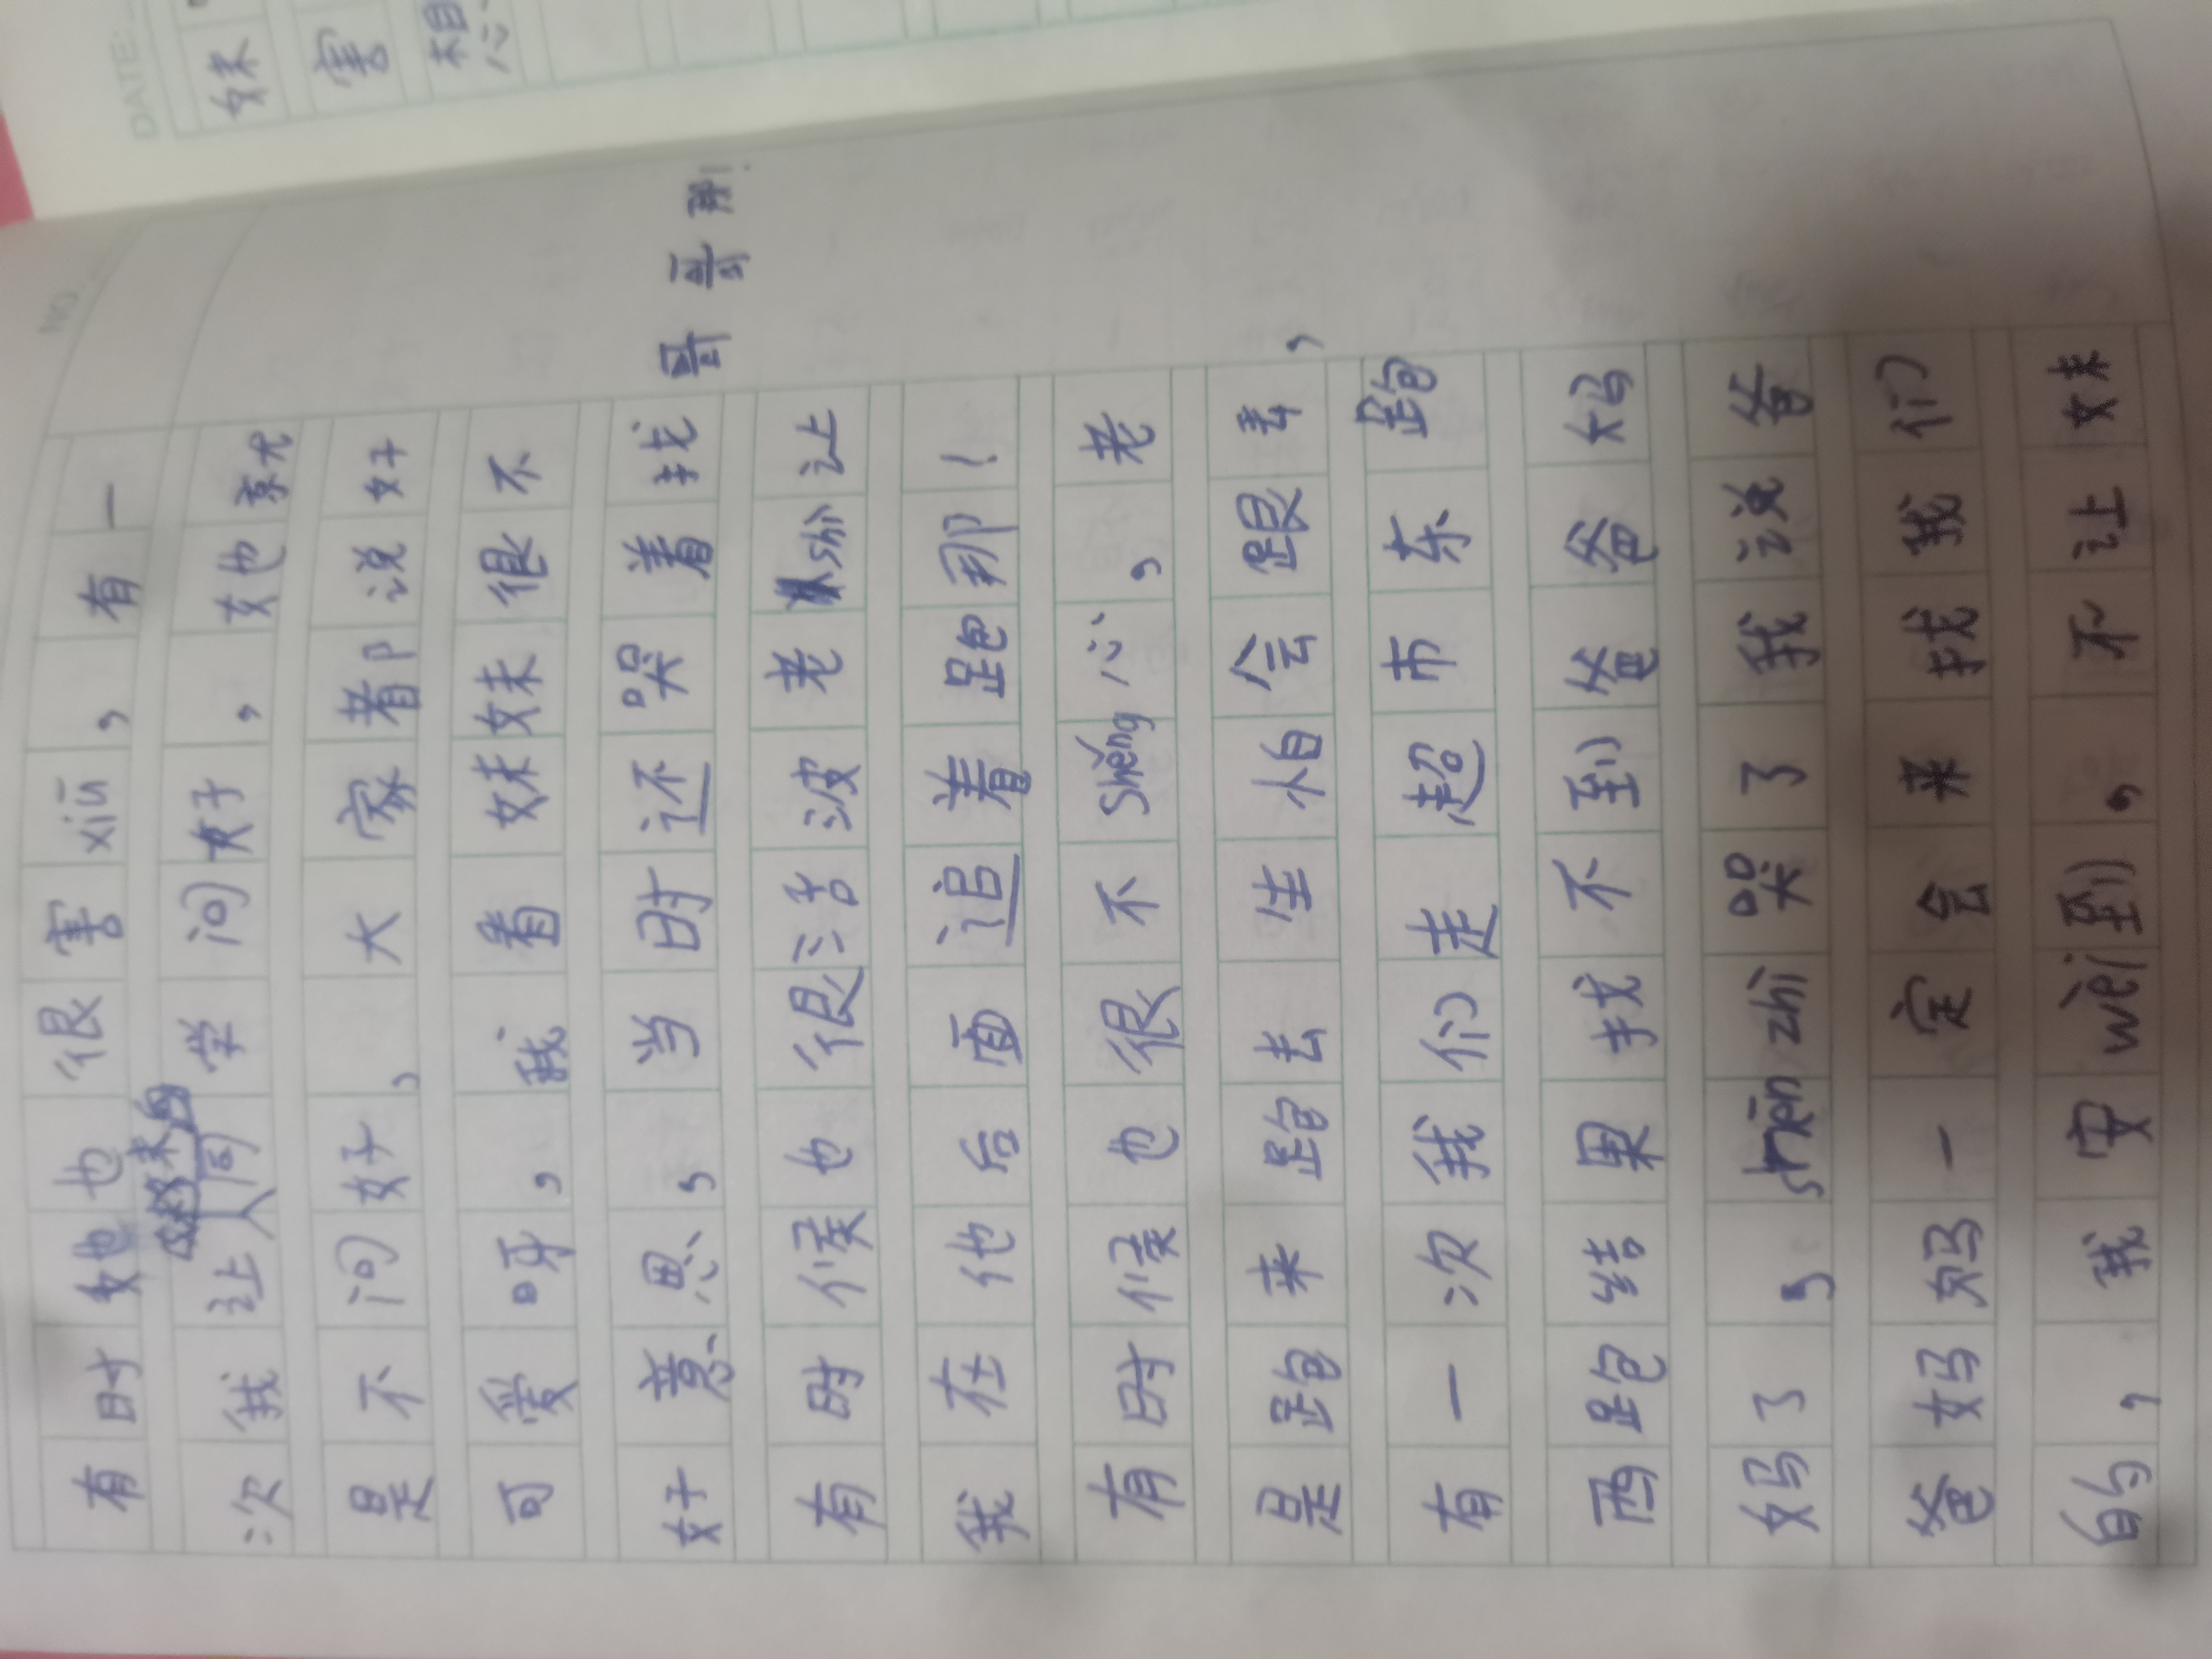 NO.
有时她也很害xiū，有一
次我让人同学问好，她就
是不问好，大家都说好
可爱呀，我看妹妹很不
好意思，当时还哭着找哥哥那!
有时候也很活波老shī让
我在他后面追着跑那！
有时候也很不shěng心，老
是跑来跑去生怕会跟丢，
有一次我们走超市东跑
西跑结果找不到爸爸妈
妈了，shēn zhì哭了我说爸
爸妈妈一定会来找我们
的，我安wèi到，不让妹
DATE:
妹
害
想